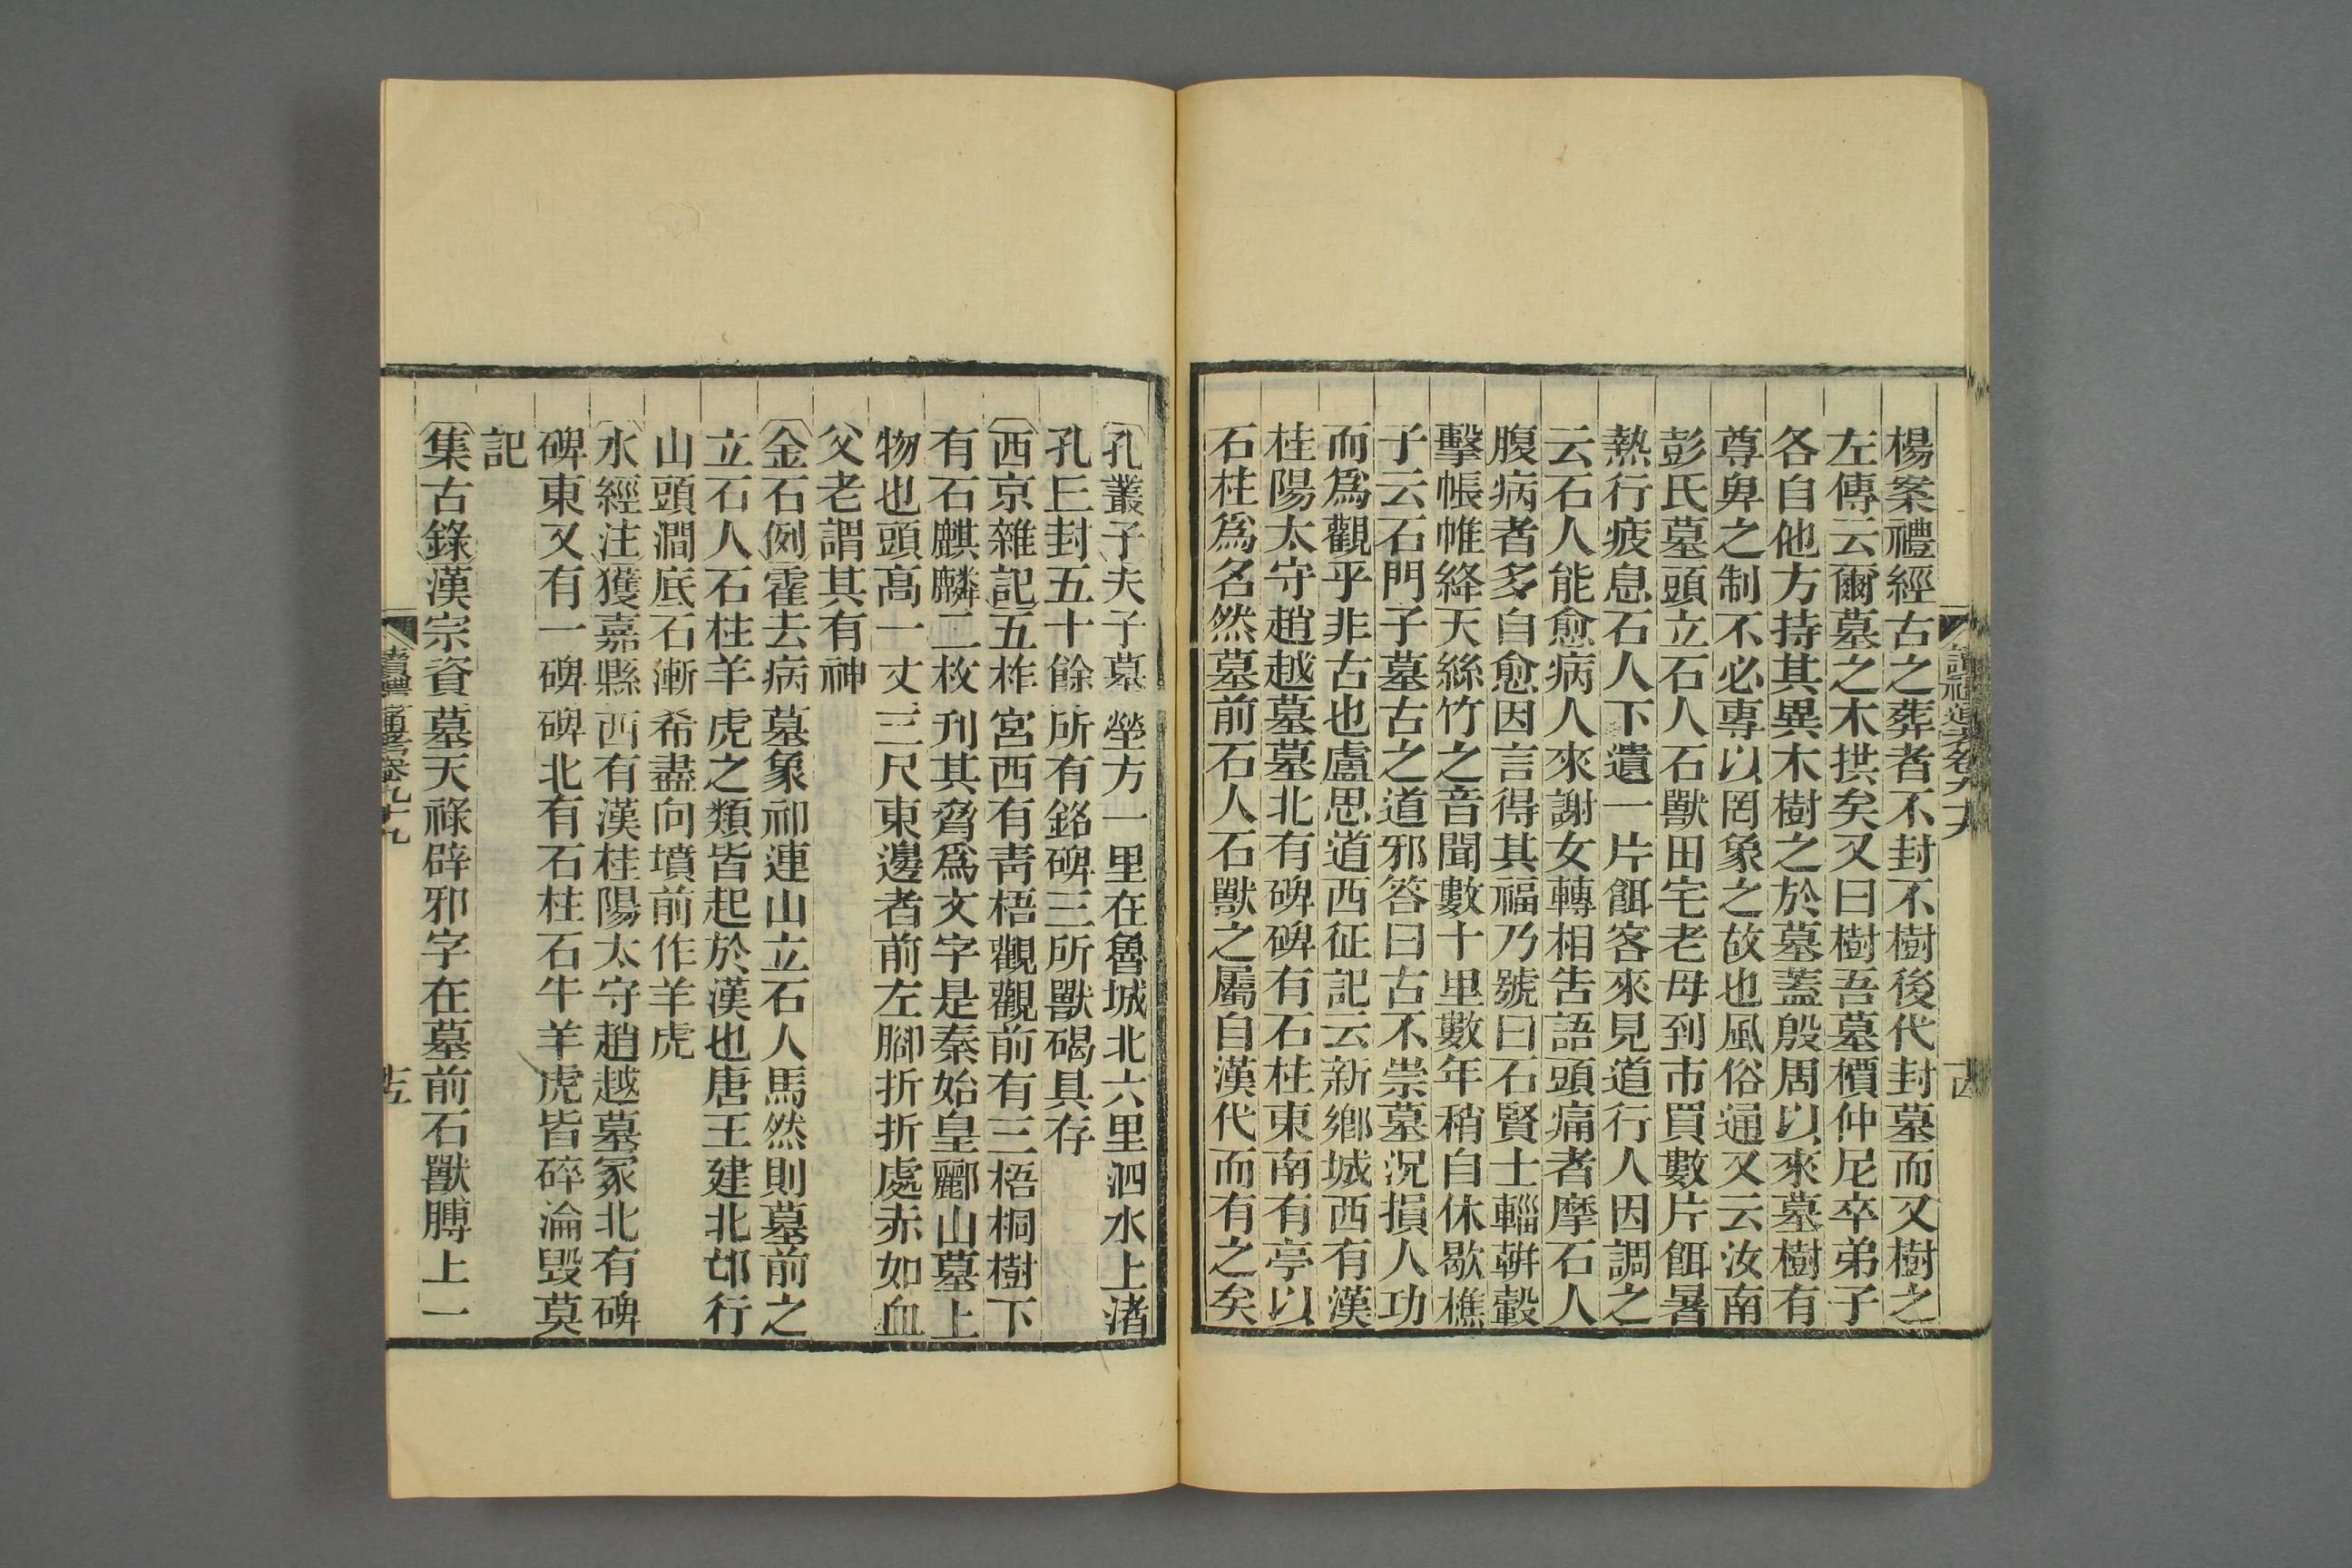 楊案禮經古之葬者不封不樹後代封墓而又樹之
左傳云爾墓之木拱矣又曰樹吾墓檟仲尼卒弟子
各自他方持其異木樹之於墓蓋殷周以來墓樹有
尊卑之制不必專以罔象之故也風俗通又云汝南
彭氏墓頭立石人石獸田宅老母到市買數片餌暑
熱行疲息石人下遺一片餌客來見道行人因調之
云石人能愈病人來謝女轉相告語頭痛者摩石人
腹病者多自愈因言得其福乃號曰石賢士輜輧轂
擊帳帷絳天絲竹之音聞數十里數年稍自休歇樵
子云石門子墓古之道邪答曰古不崇墓況損人功
而爲觀乎非古也盧思道西征記云新鄉城西有漢
桂陽太守趙越墓墓北有碑碑有石柱東南有亭以
石柱爲名然墓前石人石獸之屬自漢代而有之矣
孔叢子夫子墓塋方一里在魯城北六里泗水上渚
孔丘封五十餘所有銘碑三所獸碣具存
西京雜記五柞宮西有靑梧觀觀前有三梧桐樹下
有石麒麟二枚刋其脅爲文字是秦始皇酈山墓上
物也頭高一丈三尺東邊者前左腳折折處赤如血
父老謂其有神
金石例霍去病墓象祁連山立石人馬然則墓前之
立石人石柱羊虎之類皆起於漢也唐王建北邙行
山頭澗底石漸希盡向墳前作羊虎
水經注獲嘉縣西有漢桂陽太守趙越墓冢北有碑
碑東又有一碑碑北有石柱石牛羊虎皆碎淪毀莫
記
集古錄漢宗資墓天祿辟邪字在墓前石獸膊上一
讀禮通考卷九十九